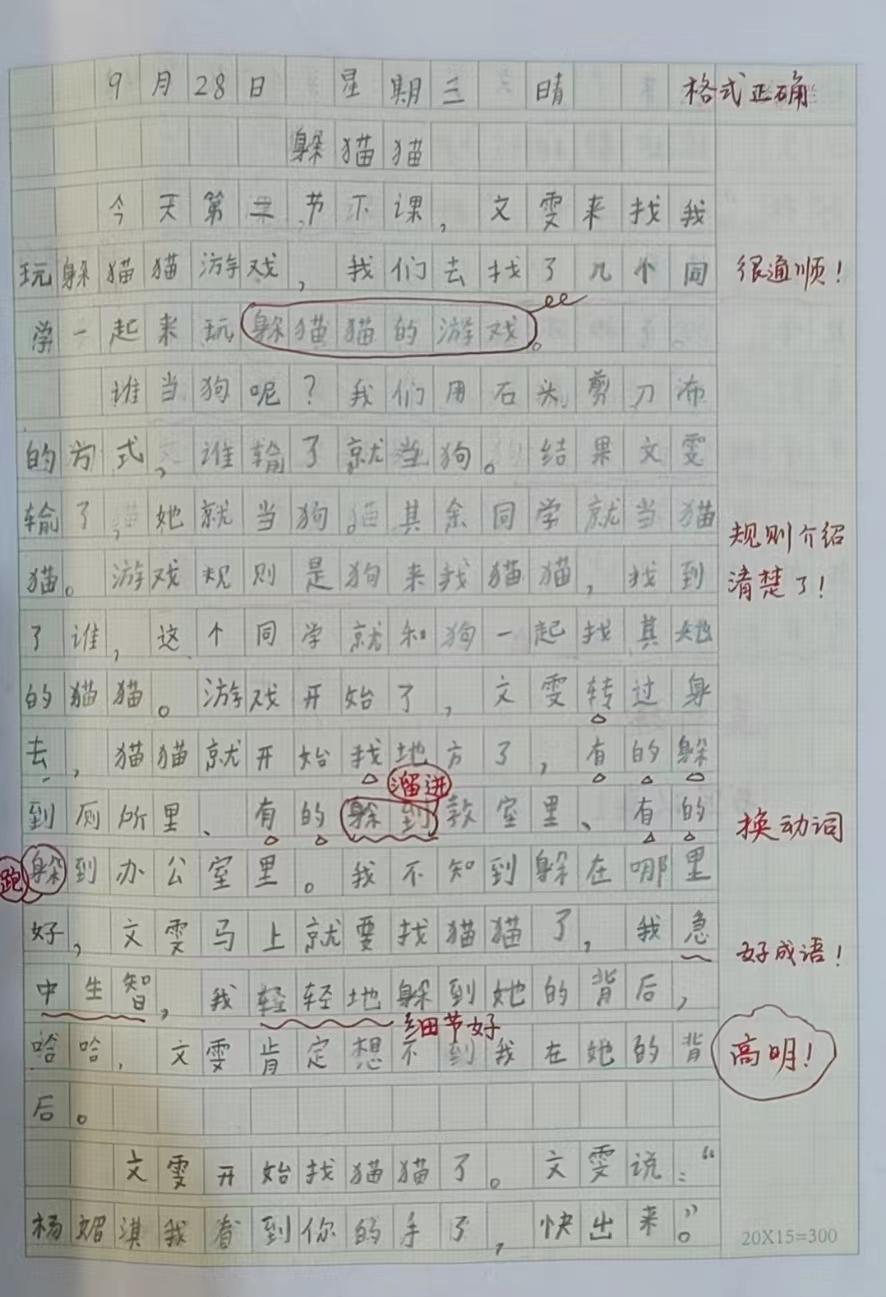 9月28日 星期三 晴 格式正确
躲猫猫
今天第二节下课，文雯来找我
玩躲猫猫游戏，我们去找了几个同 很通顺！
学一起来玩躲猫猫的游戏。
谁当狗呢？我们用石头剪刀布
的方式，谁输了就当狗。结果文雯
输了，她就当狗。其余同学就当猫
猫。游戏规则是狗来找猫猫，找到
规则介绍清楚了！
了谁，这个同学就和狗一起找其她
的猫猫。游戏开始了，文雯转过身
去，猫猫就开始找地方了，有的躲
溜进
到厕所里、有的躲到教室里、有的 换动词
跑
躲到办公室里。我不知到躲在哪里
好，文雯马上就要找猫猫了，我急 好成语！
中生智，我轻轻地躲到她的背后，
细节好
哈哈，文雯肯定想不到我在她的背 高明！
后。
文雯开始找猫猫了。文雯说：“
杨媚淇我看到你的手了，快出来”。
20X15=300